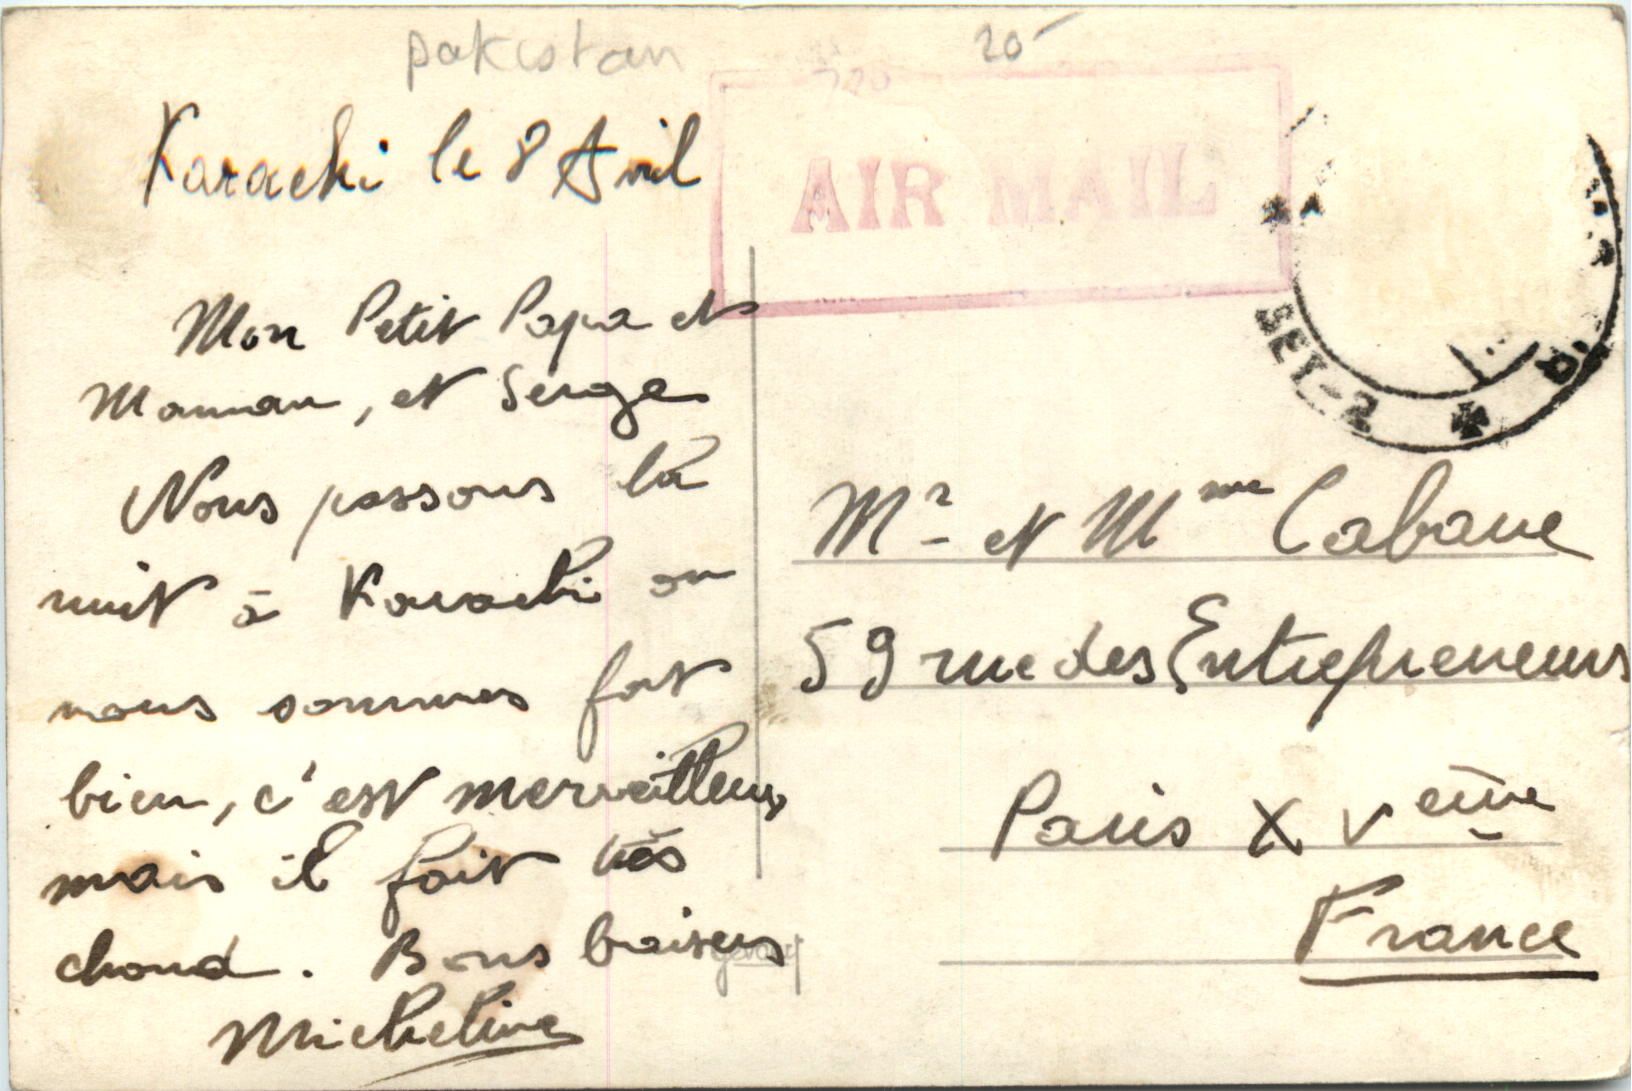 pakistan
20
Karachi le 8 Avril
AIR MAIL
Mon Petit Papa et
Maman, et Serge
Nous passons la
nuit à Karachi on
nous sommes fort
bien, c'est merveilleux,
mais il fait très
chaud. Bons baisers
Micheline
SET-2
Mr et Mme Cabane
59 rue des Entrepreneurs
Paris XVeme
France